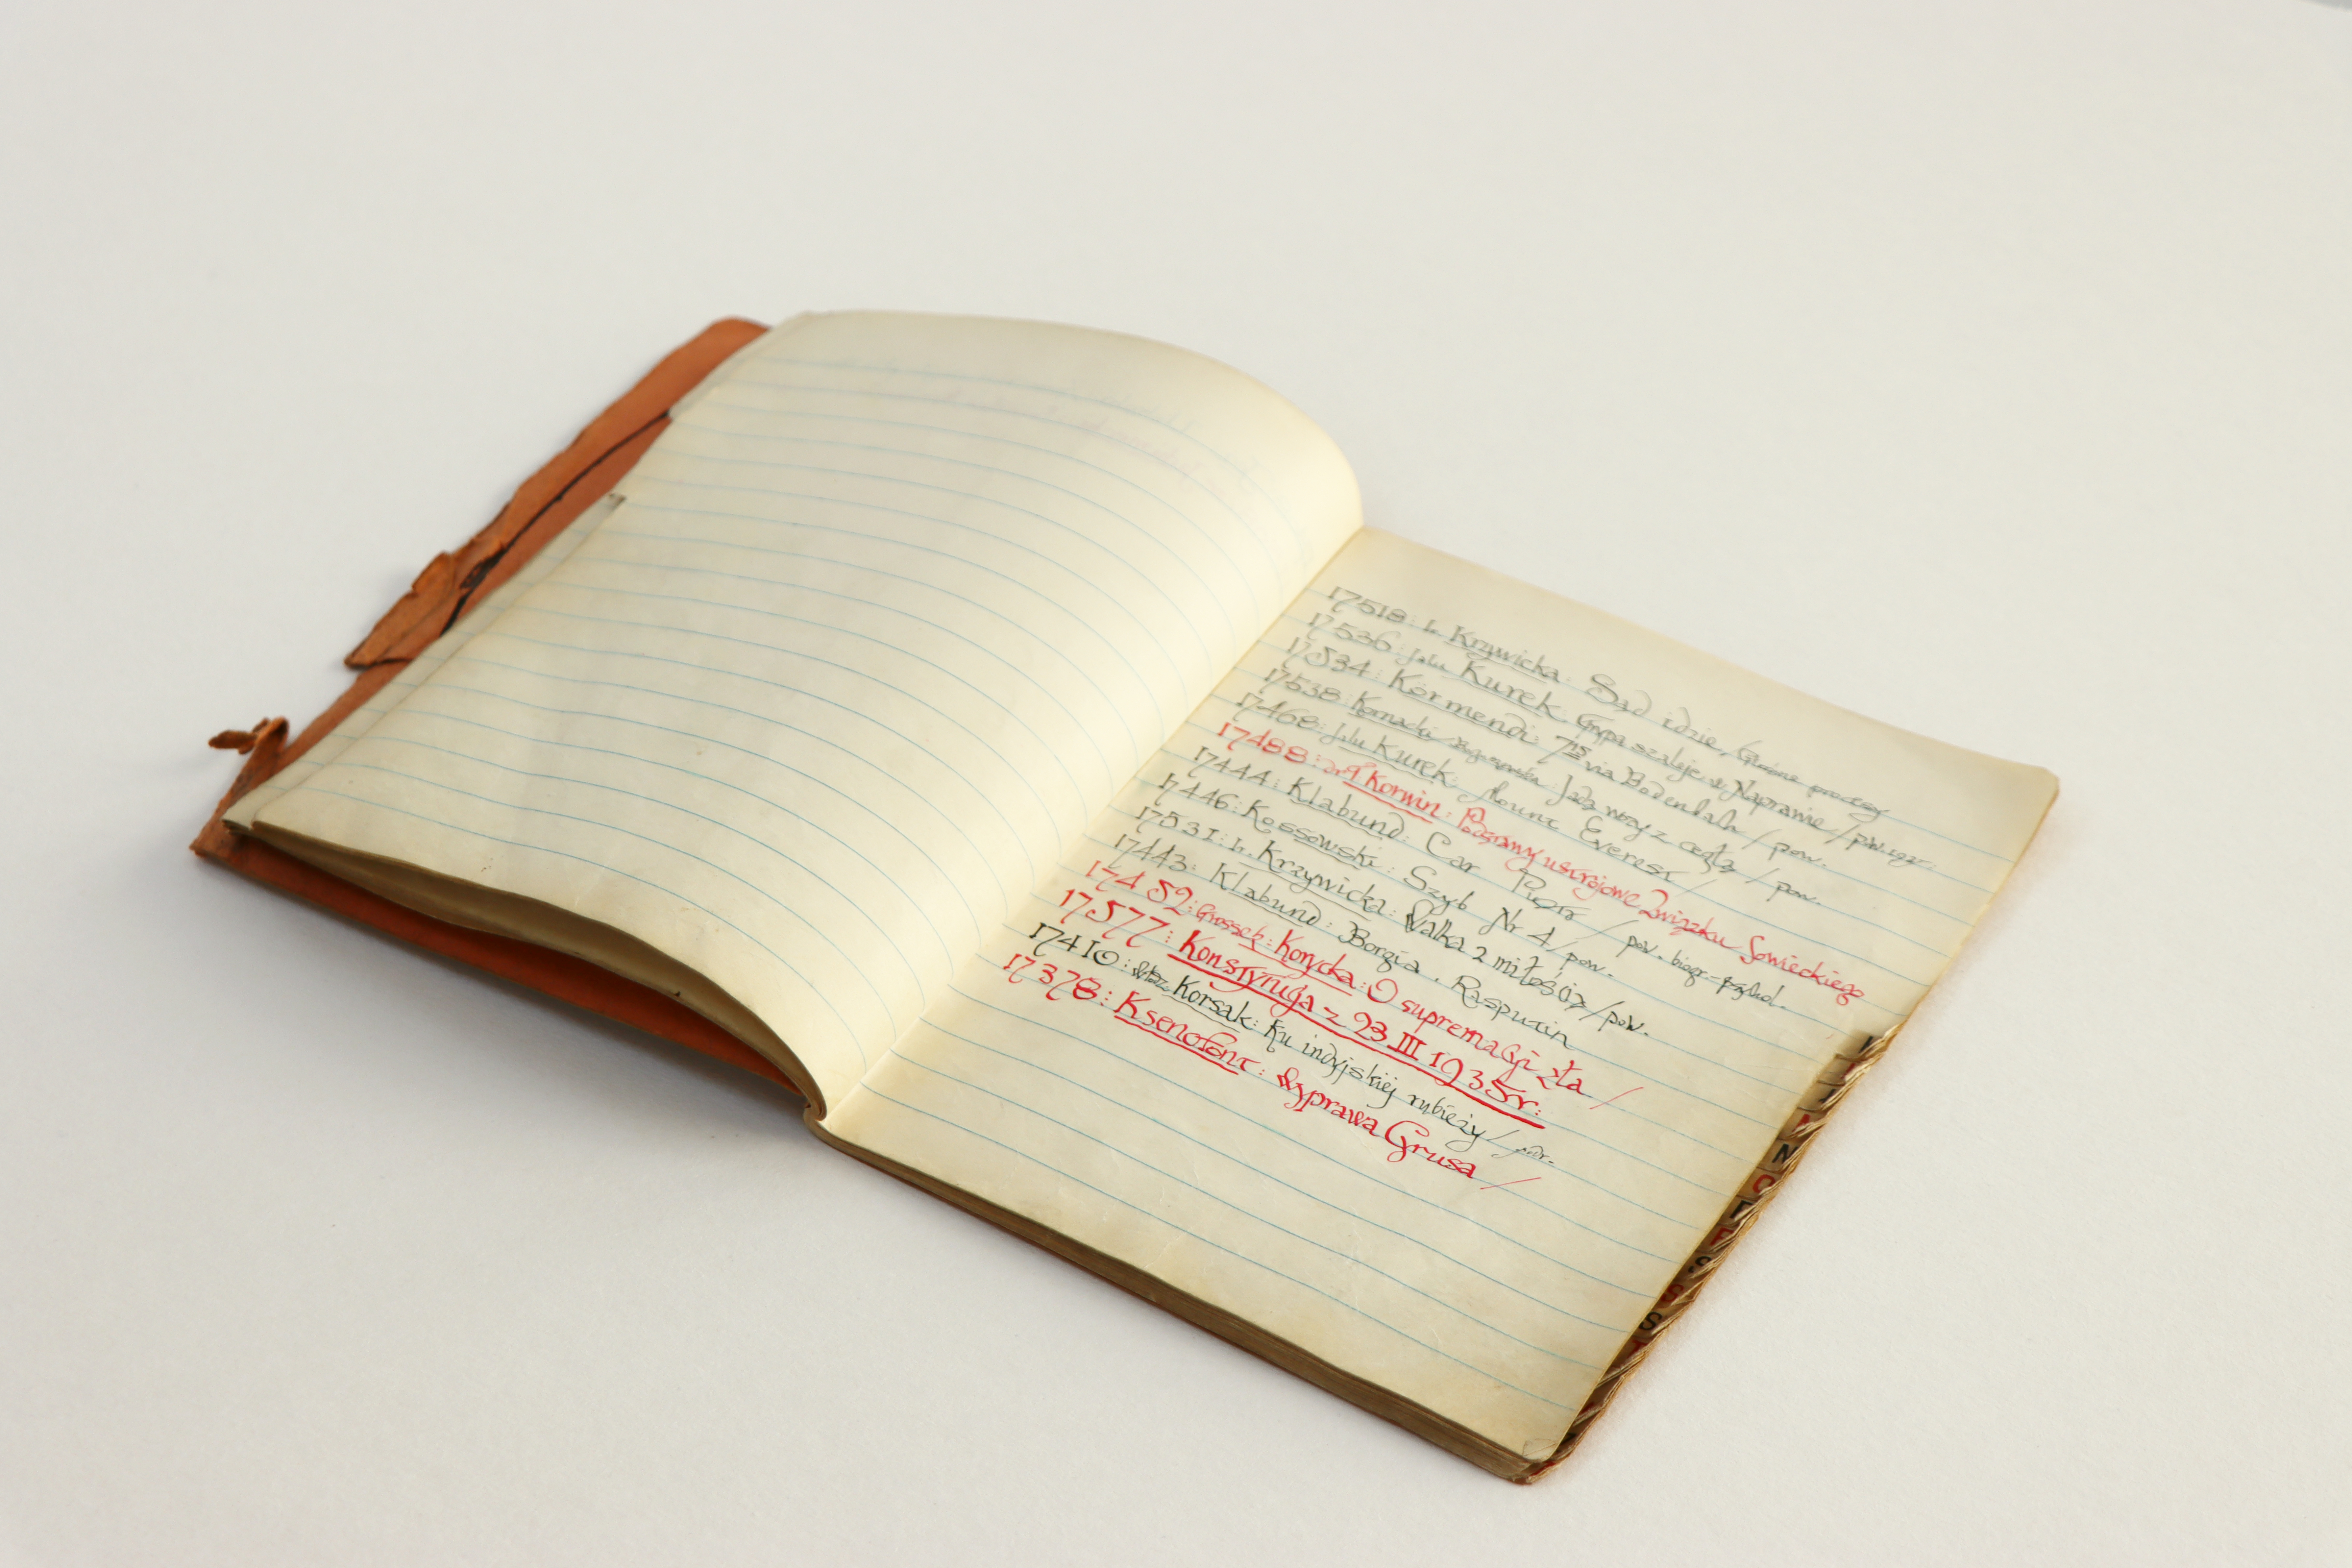 17518: I. Krzywicka: Sąd idzie / Głośne procesy
17536: Jalu Kurek: Grypa szaleje w Naprawie / pow.
17534: Körmendi: 7¹⁵ via Bodenbach / pow.
17538: Kornacki Jadą wozy z cegłą / pow.
17468: Jalu Kurek: Mount Everest /
17488: Korwin: Podstawy ustrojowe Związku Sowieckiego
17444: Klabund: Car Piotr / pow. biogr-psychol.
17446: Kossowski: Szyb Nr 4 / pow.
17531: I. Krzywicka: Walka z miłością / pow.
17443: Klabund: Borgia. Rasputin
17452: Grossek: Korycka: O supremacji zła /
17577: Konstytucja z 23 III 1935 r.
17410: Korsak: Ku indyjskiej rubieży /
17378: Ksenofont: Wyprawa Cyrusa /
N
O
P
S
S